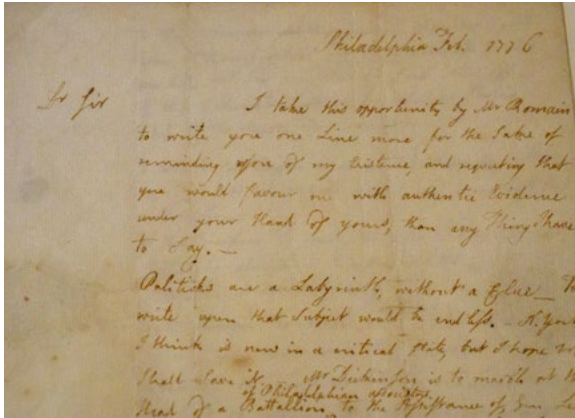 Philadelphia Feb. 1776
Dr Sir
I take this opportunity by Mr Romain
to write you one Line more for the Sake of
reminding you of my Existence, and requesting that
you would favour me with authentic Evidence
under your Hand of yours, than any Thing I have
to Say. —
Politicks are a Labyrinth, without a Clue — To
write upon that Subject would be endless. — N. York
I think is now in a critical State, but I hope we
Shall Save it. Mr Dickinson is to march at the
of Philadelphian associators
Head of a Battallion, to the assistance of Gen. Lee